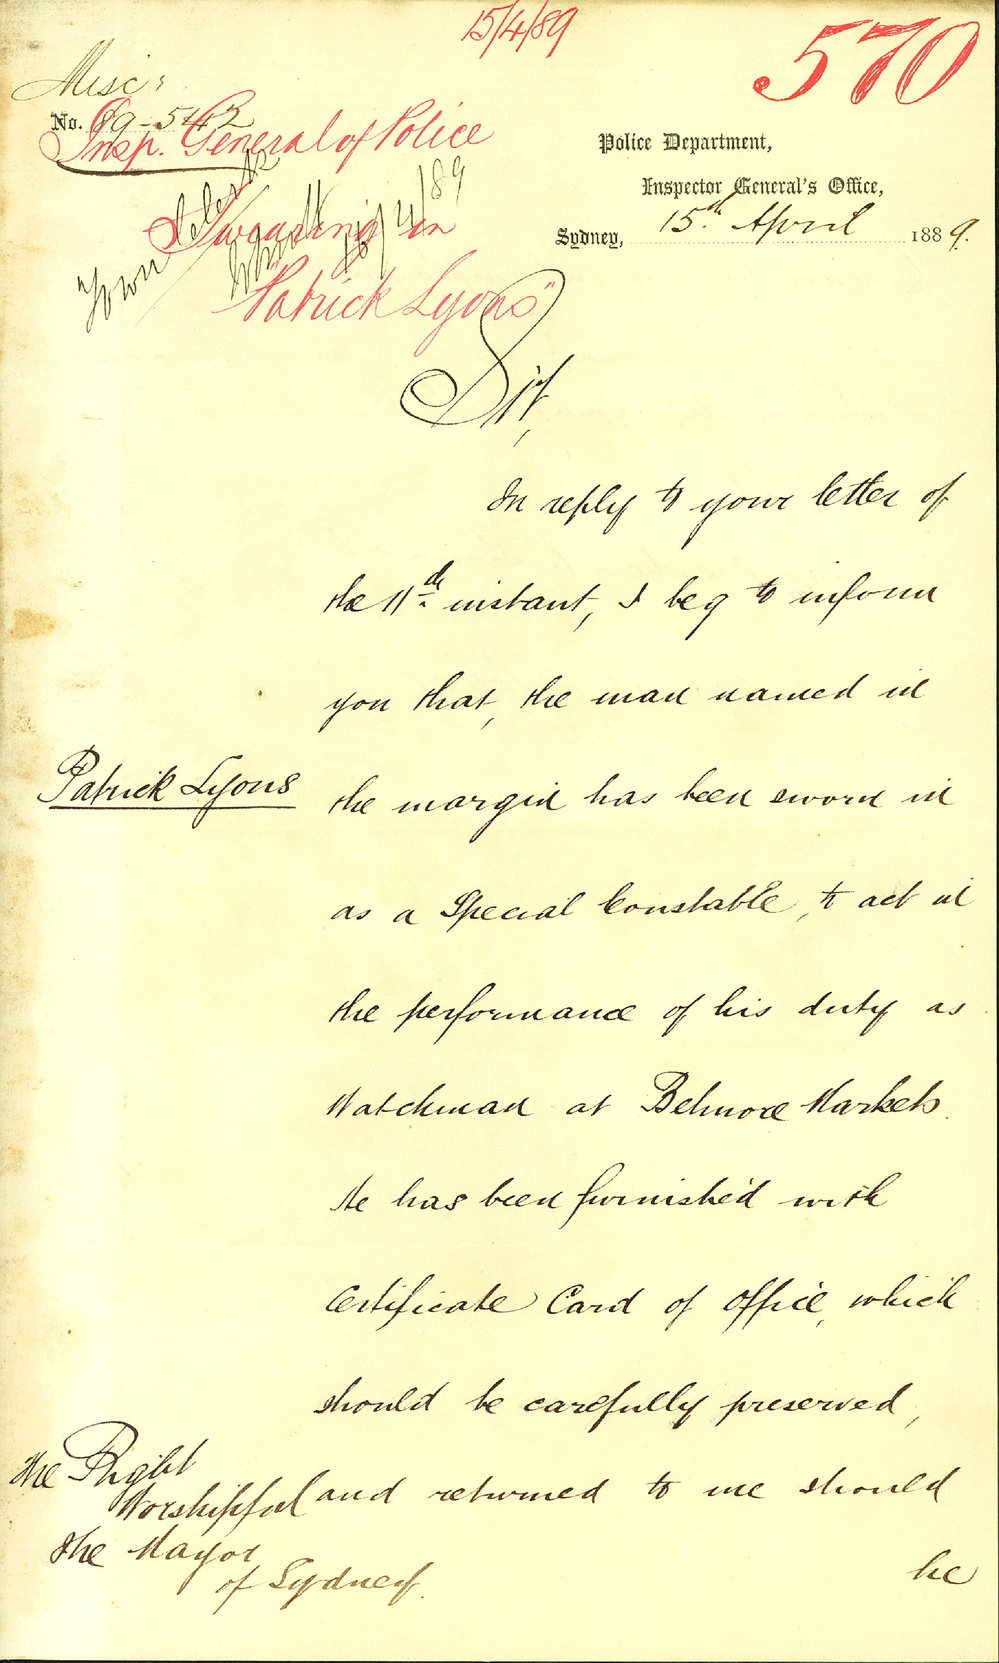 15/4/89
570
Misc:
No. 89-542
Insp. General of Police
Swearing in
"Patrick Lyons"
Town Clerk
16/4/89
Police Department,
Inspector General's Office,
Sydney, 15th. April 1889.
Sir,
In reply to your letter of
the 11th. instant, I beg to inform
you that, the man named in
Patrick Lyons the margin has been sworn in
as a Special Constable, to act in
the performance of his duty as
Watchman at Belmore Markets.
He has been furnished with
Certificate Card of Office, which
should be carefully preserved,
and returned to me should
he
The Right
Worshipful
The Mayor
of Sydney.